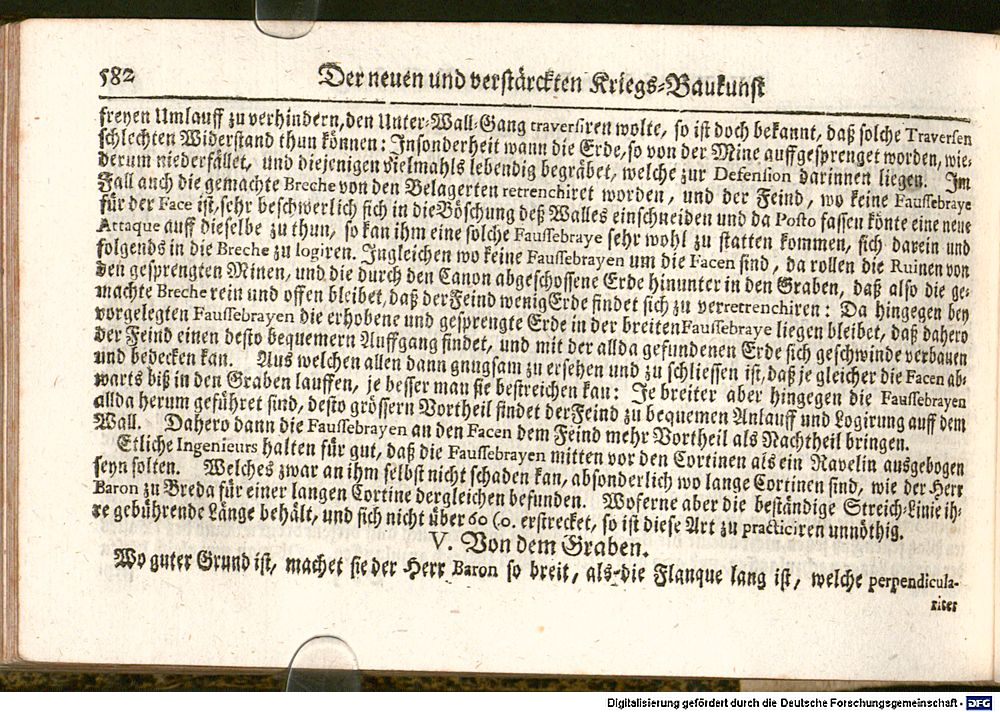 582 Der neuen und verstärckten Kriegs-Baukunst
freyen Umlauff zu verhindern, den Unter-Wall-Gang traversiren wolte, so ist doch bekannt, daß solche Traversen
schlechten Widerstand thun können: Insonderheit wann die Erde, so von der Mine auffgesprenget worden, wie-
derum niederfället, und diejenigen vielmahls lebendig begräbet, welche zur Defension darinnen liegen. Im
Fall auch die gemachte Breche von den Belagerten retrenchiret worden, und der Feind, wo keine Faussebraye
für der Face ist, sehr beschwerlich sich in die Böschung deß Walles einschneiden und da Posto fassen könte eine neue
Attaque auff dieselbe zu thun, so kan ihm eine solche Faussebraye sehr wohl zu statten kommen, sich darein und
folgends in die Breche zu logiren. Ingleichen wo keine Faussebrayen um die Facen sind, da rollen die Ruinen von
den gesprengten Minen, und die durch den Canon abgeschossene Erde hinunter in den Graben, daß also die ge-
machte Breche rein und offen bleibet, daß der Feind wenig Erde findet sich zu verretrenchiren: Da hingegen bey
vorgelegten Faussebrayen die erhobene und gesprengte Erde in der breiten Faussebraye liegen bleibet, daß dahero
der Feind einen desto bequemern Auffgang findet, und mit der allda gefundenen Erde sich geschwinde verbauen
und bedecken kan. Aus welchen allen dann gnugsam zu ersehen und zu schliessen ist, daß je gleicher die Facen ab-
warts biß in den Graben lauffen, je besser man sie bestreichen kan: Je breiter aber hingegen die Faussebrayen
allda herum geführet sind, desto grössern Vortheil findet der Feind zu bequemen Anlauff und Logirung auff dem
Wall. Dahero dann die Faussebrayen an den Facen dem Feind mehr Vortheil als Nachtheil bringen.
Etliche Ingenieurs halten für gut, daß die Faussebrayen mitten vor den Cortinen als ein Ravelin ausgebogen
seyn solten. Welches zwar an ihm selbst nicht schaden kan, absonderlich wo lange Cortinen sind, wie der Herr
Baron zu Breda für einer langen Cortine dergleichen befunden. Woferne aber die beständige Streich-Linie ih-
re gebührende Länge behält, und sich nicht über 60 (.o. erstrecket, so ist diese Art zu practiciren unnöthig.
V. Von dem Graben.
Wo guter Grund ist, machet sie der Herr Baron so breit, als die Flanque lang ist, welche perpendicula-
riter
Digitalisierung gefördert durch die Deutsche Forschungsgemeinschaft - DFG